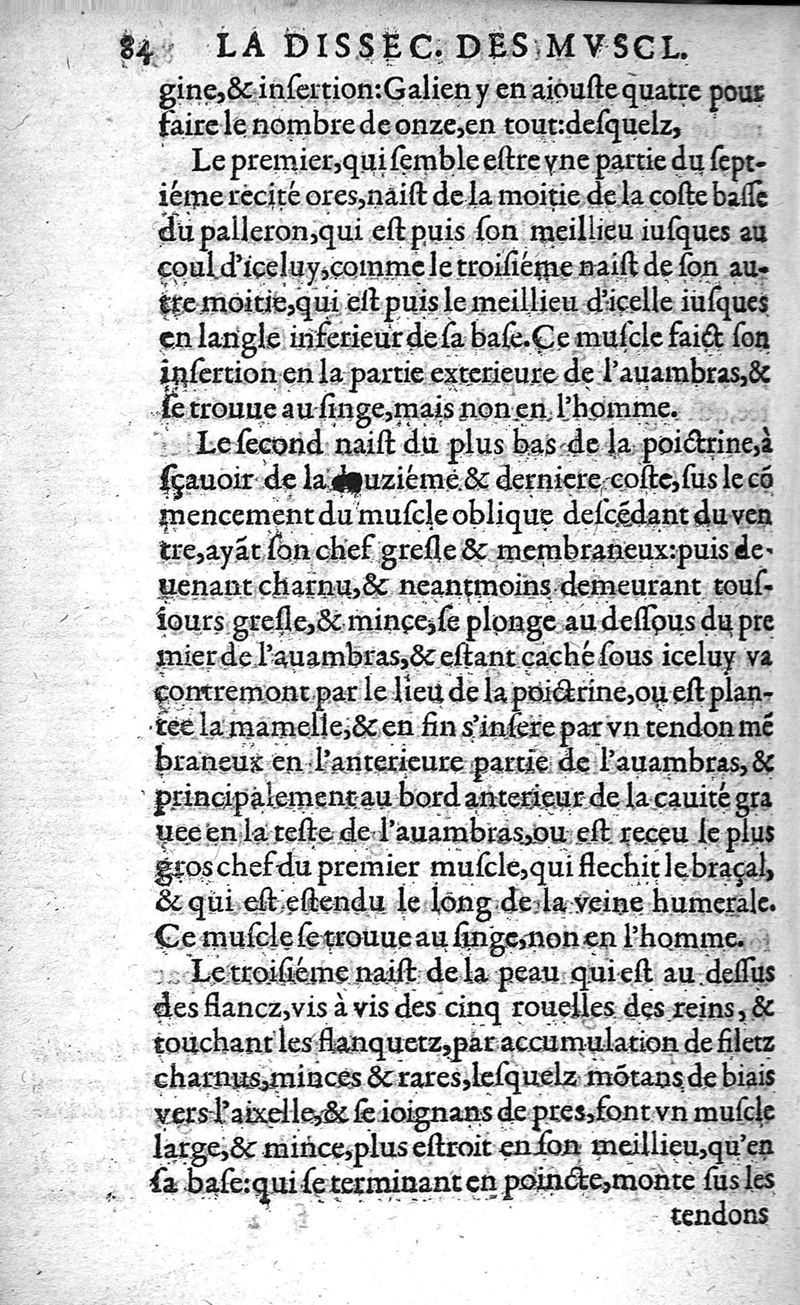 84 LA DISSEC. DES MVSCL.
gine,& inſertion:Galien y en aiouſte quatre pour
faire le nombre de onze,en tout:deſquelz,
Le premier,qui ſemble eſtre vne partie du ſept-
iéme recité ores,naiſt de la moitie de la coſte baſſe
du palleron,qui eſt puis ſon meillieu iuſques au
coul d'iceluy,comme le troiſiéme naiſt de ſon au-
tre moitie,qui eſt puis le meillieu d'icelle iuſques
en langle inferieur de ſa baſe.Ce muſcle faict ſon
inſertion en la partie exterieure de l'auambras,&
ſe trouue au ſinge,mais non en l'homme.
Le ſecond naiſt du plus bas de la poictrine,à
ſçauoir de la douziéme & derniere coſte,ſus le cõ
mencement du muſcle oblique deſcẽdant du ven
tre,ayãt ſon chef greſle & membraneux:puis de-
uenant charnu,& neantmoins demeurant touſ-
iours greſle,& mince,ſe plonge au deſſous du pre
mier de l'auambras,& eſtant caché ſous iceluy va
contremont par le lieu de la poictrine,ou eſt plan-
tee la mamelle,& en fin s'inſere par vn tendon mẽ
braneux en l'anterieure partie de l'auambras,&
principalement au bord anterieur de la cauité gra
uee en la teſte de l'auambras,ou eſt receu le plus
gros chef du premier muſcle,qui flechit le braçal,
& qui eſt eſtendu le long de la veine humerale.
Ce muſcle ſe trouue au ſinge,non en l'homme.
Le troiſiéme naiſt de la peau qui eſt au deſſus
des flancz,vis à vis des cinq rouelles des reins,&
touchant les flanquetz,par accumulation de filetz
charnus,minces & rares,leſquelz mõtans de biais
vers l'aixelle,& ſe ioignans de pres,font vn muſcle
large,& mince,plus eſtroit en ſon meillieu,qu'en
ſa baſe:qui ſe terminant en poincte,monte ſus les
tendons